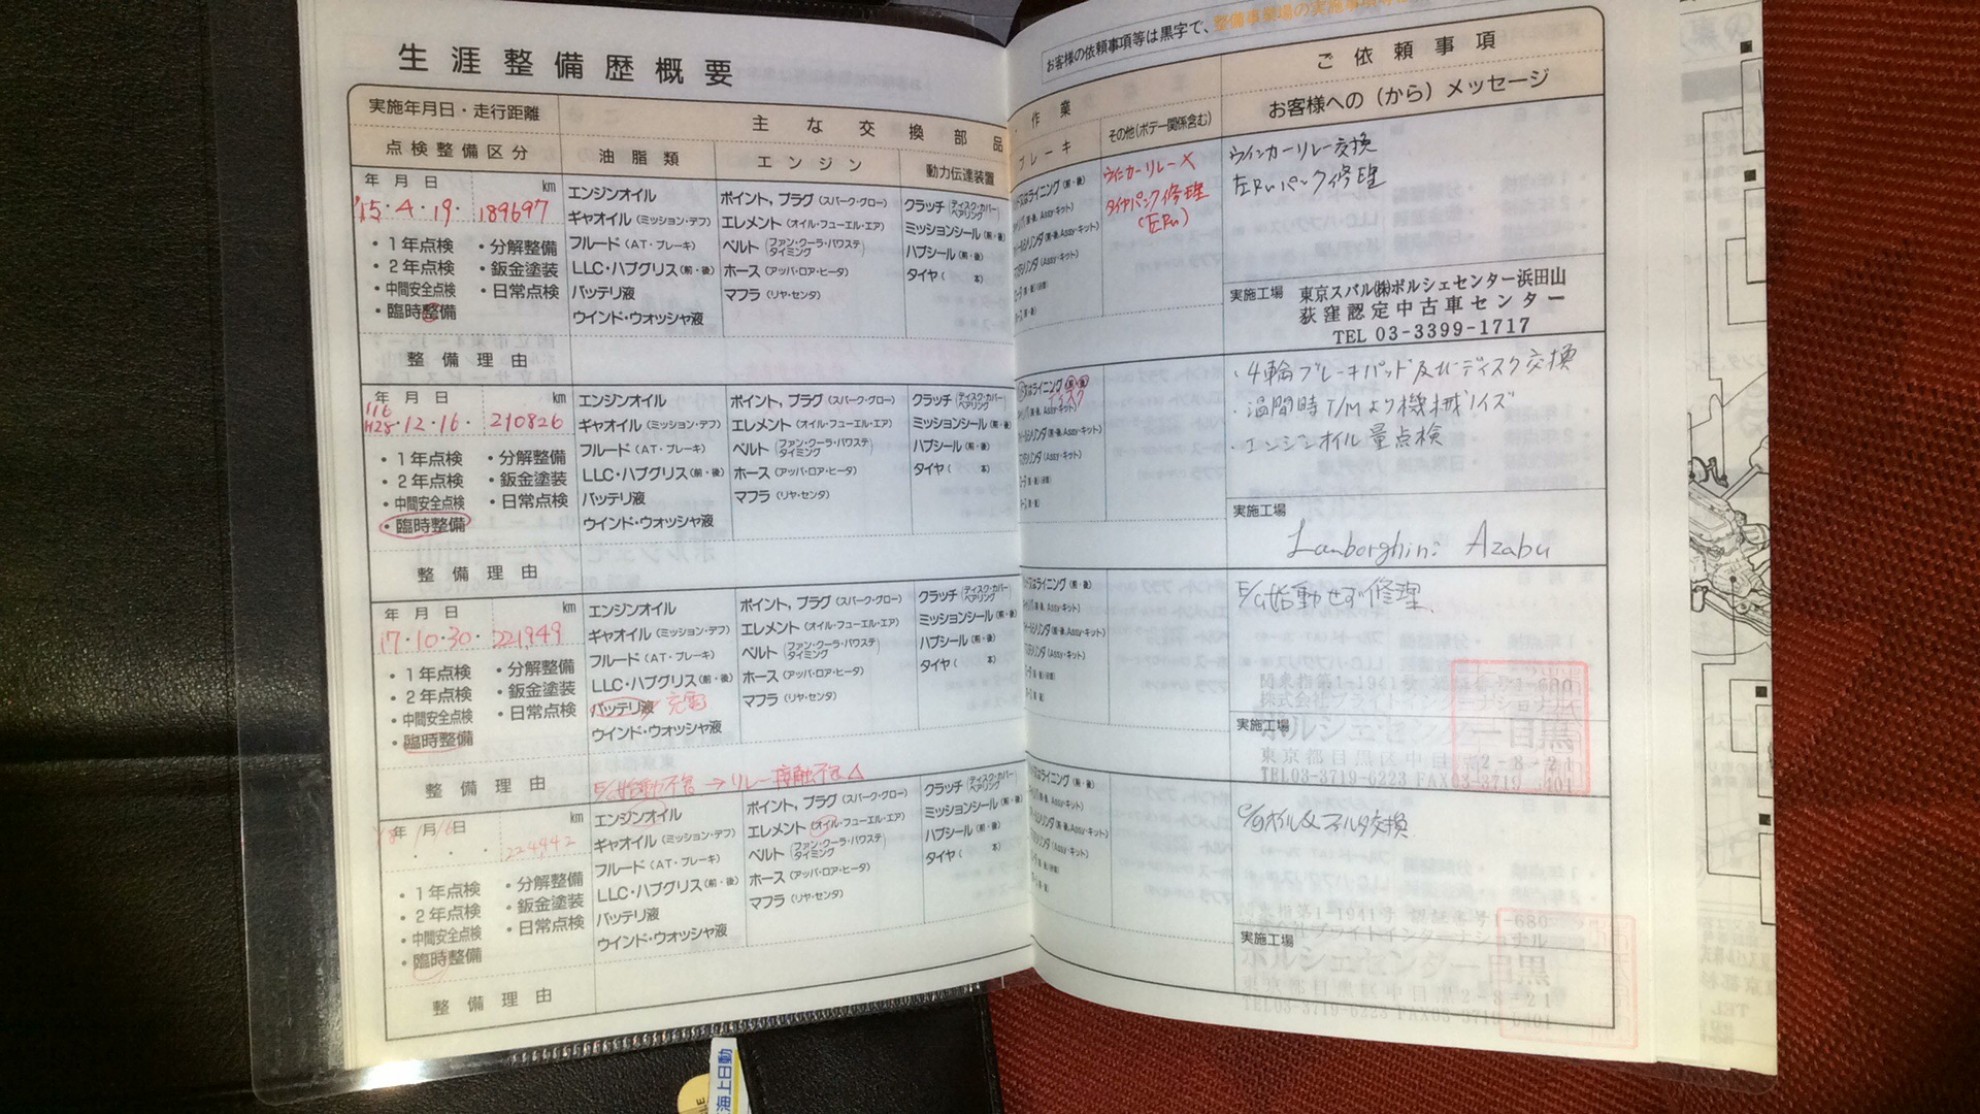 生涯整備歴概要
お客様の依頼事項等は黒字で、整備事業場の実施事項等
実施年月日・走行距離
主な交換部品
・作業
ご依頼事項
点検整備区分
油脂類
エンジン
動力伝達装置
ブレーキ
その他(ボデー関係含む)
お客様への(から)メッセージ
年 月 日 km
'15・4・19・ 189697
・1年点検 ・分解整備
・2年点検 ・鈑金塗装
・中間安全点検 ・日常点検
・臨時整備
エンジンオイル
ギャオイル(ミッション・デフ)
フルード(AT・ブレーキ)
LLC・ハブグリス(前・後)
バッテリ液
ウインド・ウオッシャ液
ポイント, プラグ(スパーク・グロー)
エレメント(オイル・フューエル・エア)
ベルト(ファン・クーラ・パワステ タイミング)
ホース(アッパ・ロア・ヒータ)
マフラ(リヤ・センタ)
クラッチ(ディスク・カバー ベアリング)
ミッションシール(前・後)
ハブシール(前・後)
タイヤ( 本)
ウインカーリレー✕
タイヤパンク修理
(左Rr)
ウインカーリレー交換
左Rrパンク修理
実施工場
東京スバル㈱ポルシェセンター浜田山
荻窪認定中古車センター
TEL 03-3399-1717
整備理由
年 月 日 km
'16
H28・12・16・ 210826
・1年点検 ・分解整備
・2年点検 ・鈑金塗装
・中間安全点検 ・日常点検
・臨時整備
エンジンオイル
ギャオイル(ミッション・デフ)
フルード(AT・ブレーキ)
LLC・ハブグリス(前・後)
バッテリ液
ウインド・ウオッシャ液
ポイント, プラグ(スパーク・グロー)
エレメント(オイル・フューエル・エア)
ベルト(ファン・クーラ・パワステ タイミング)
ホース(アッパ・ロア・ヒータ)
マフラ(リヤ・センタ)
クラッチ(ディスク・カバー ベアリング)
ミッションシール(前・後)
ハブシール(前・後)
タイヤ( 本)
ディスク
・4輪ブレーキパッド及びディスク交換
・温間時T/Mより機械ノイズ
・エンジンオイル量点検
実施工場
Lamborghini Azabu
整備理由
年 月 日 km
17・10・30・ 221,949
・1年点検 ・分解整備
・2年点検 ・鈑金塗装
・中間安全点検 ・日常点検
・臨時整備
エンジンオイル
ギャオイル(ミッション・デフ)
フルード(AT・ブレーキ)
LLC・ハブグリス(前・後)
バッテリ液 充電
ウインド・ウオッシャ液
ポイント, プラグ(スパーク・グロー)
エレメント(オイル・フューエル・エア)
ベルト(ファン・クーラ・パワステ タイミング)
ホース(アッパ・ロア・ヒータ)
マフラ(リヤ・センタ)
クラッチ(ディスク・カバー ベアリング)
ミッションシール(前・後)
ハブシール(前・後)
タイヤ( 本)
E/G始動せず修理
関東指第1-1941号 認証番号1-680
実施工場
ポルシェセンター目黒
東京都目黒区中目黒2-8-21
TEL03-3719-6223 FAX03-3719-6401
整備理由
E/G始動不良→リレー接触不良△
年 月 日 km
18 1/16 224,942
・1年点検 ・分解整備
・2年点検 ・鈑金塗装
・中間安全点検 ・日常点検
・臨時整備
エンジンオイル
ギャオイル(ミッション・デフ)
フルード(AT・ブレーキ)
LLC・ハブグリス(前・後)
バッテリ液
ウインド・ウオッシャ液
ポイント, プラグ(スパーク・グロー)
エレメント(オイル・フューエル・エア)
ベルト(ファン・クーラ・パワステ タイミング)
ホース(アッパ・ロア・ヒータ)
マフラ(リヤ・センタ)
クラッチ(ディスク・カバー ベアリング)
ミッションシール(前・後)
ハブシール(前・後)
タイヤ( 本)
E/Gオイル&フィルタ交換
関東指第1-1941号 認証番号1-680
株式会社ブライトインターナショナル
実施工場
ポルシェセンター目黒
東京都目黒区中目黒2-8-21
TEL03-3719-6223 FAX03-3719-6401
整備理由
海上日動